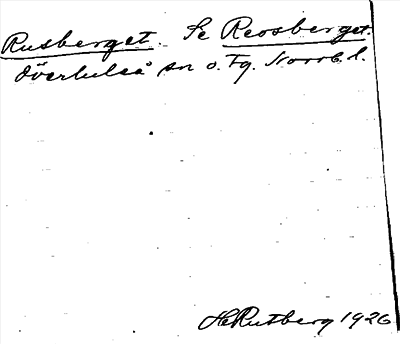 Rusberget. Se Reosberget.
Överluleå sn o. Fg. Norrb. l.
HRutberg 1926